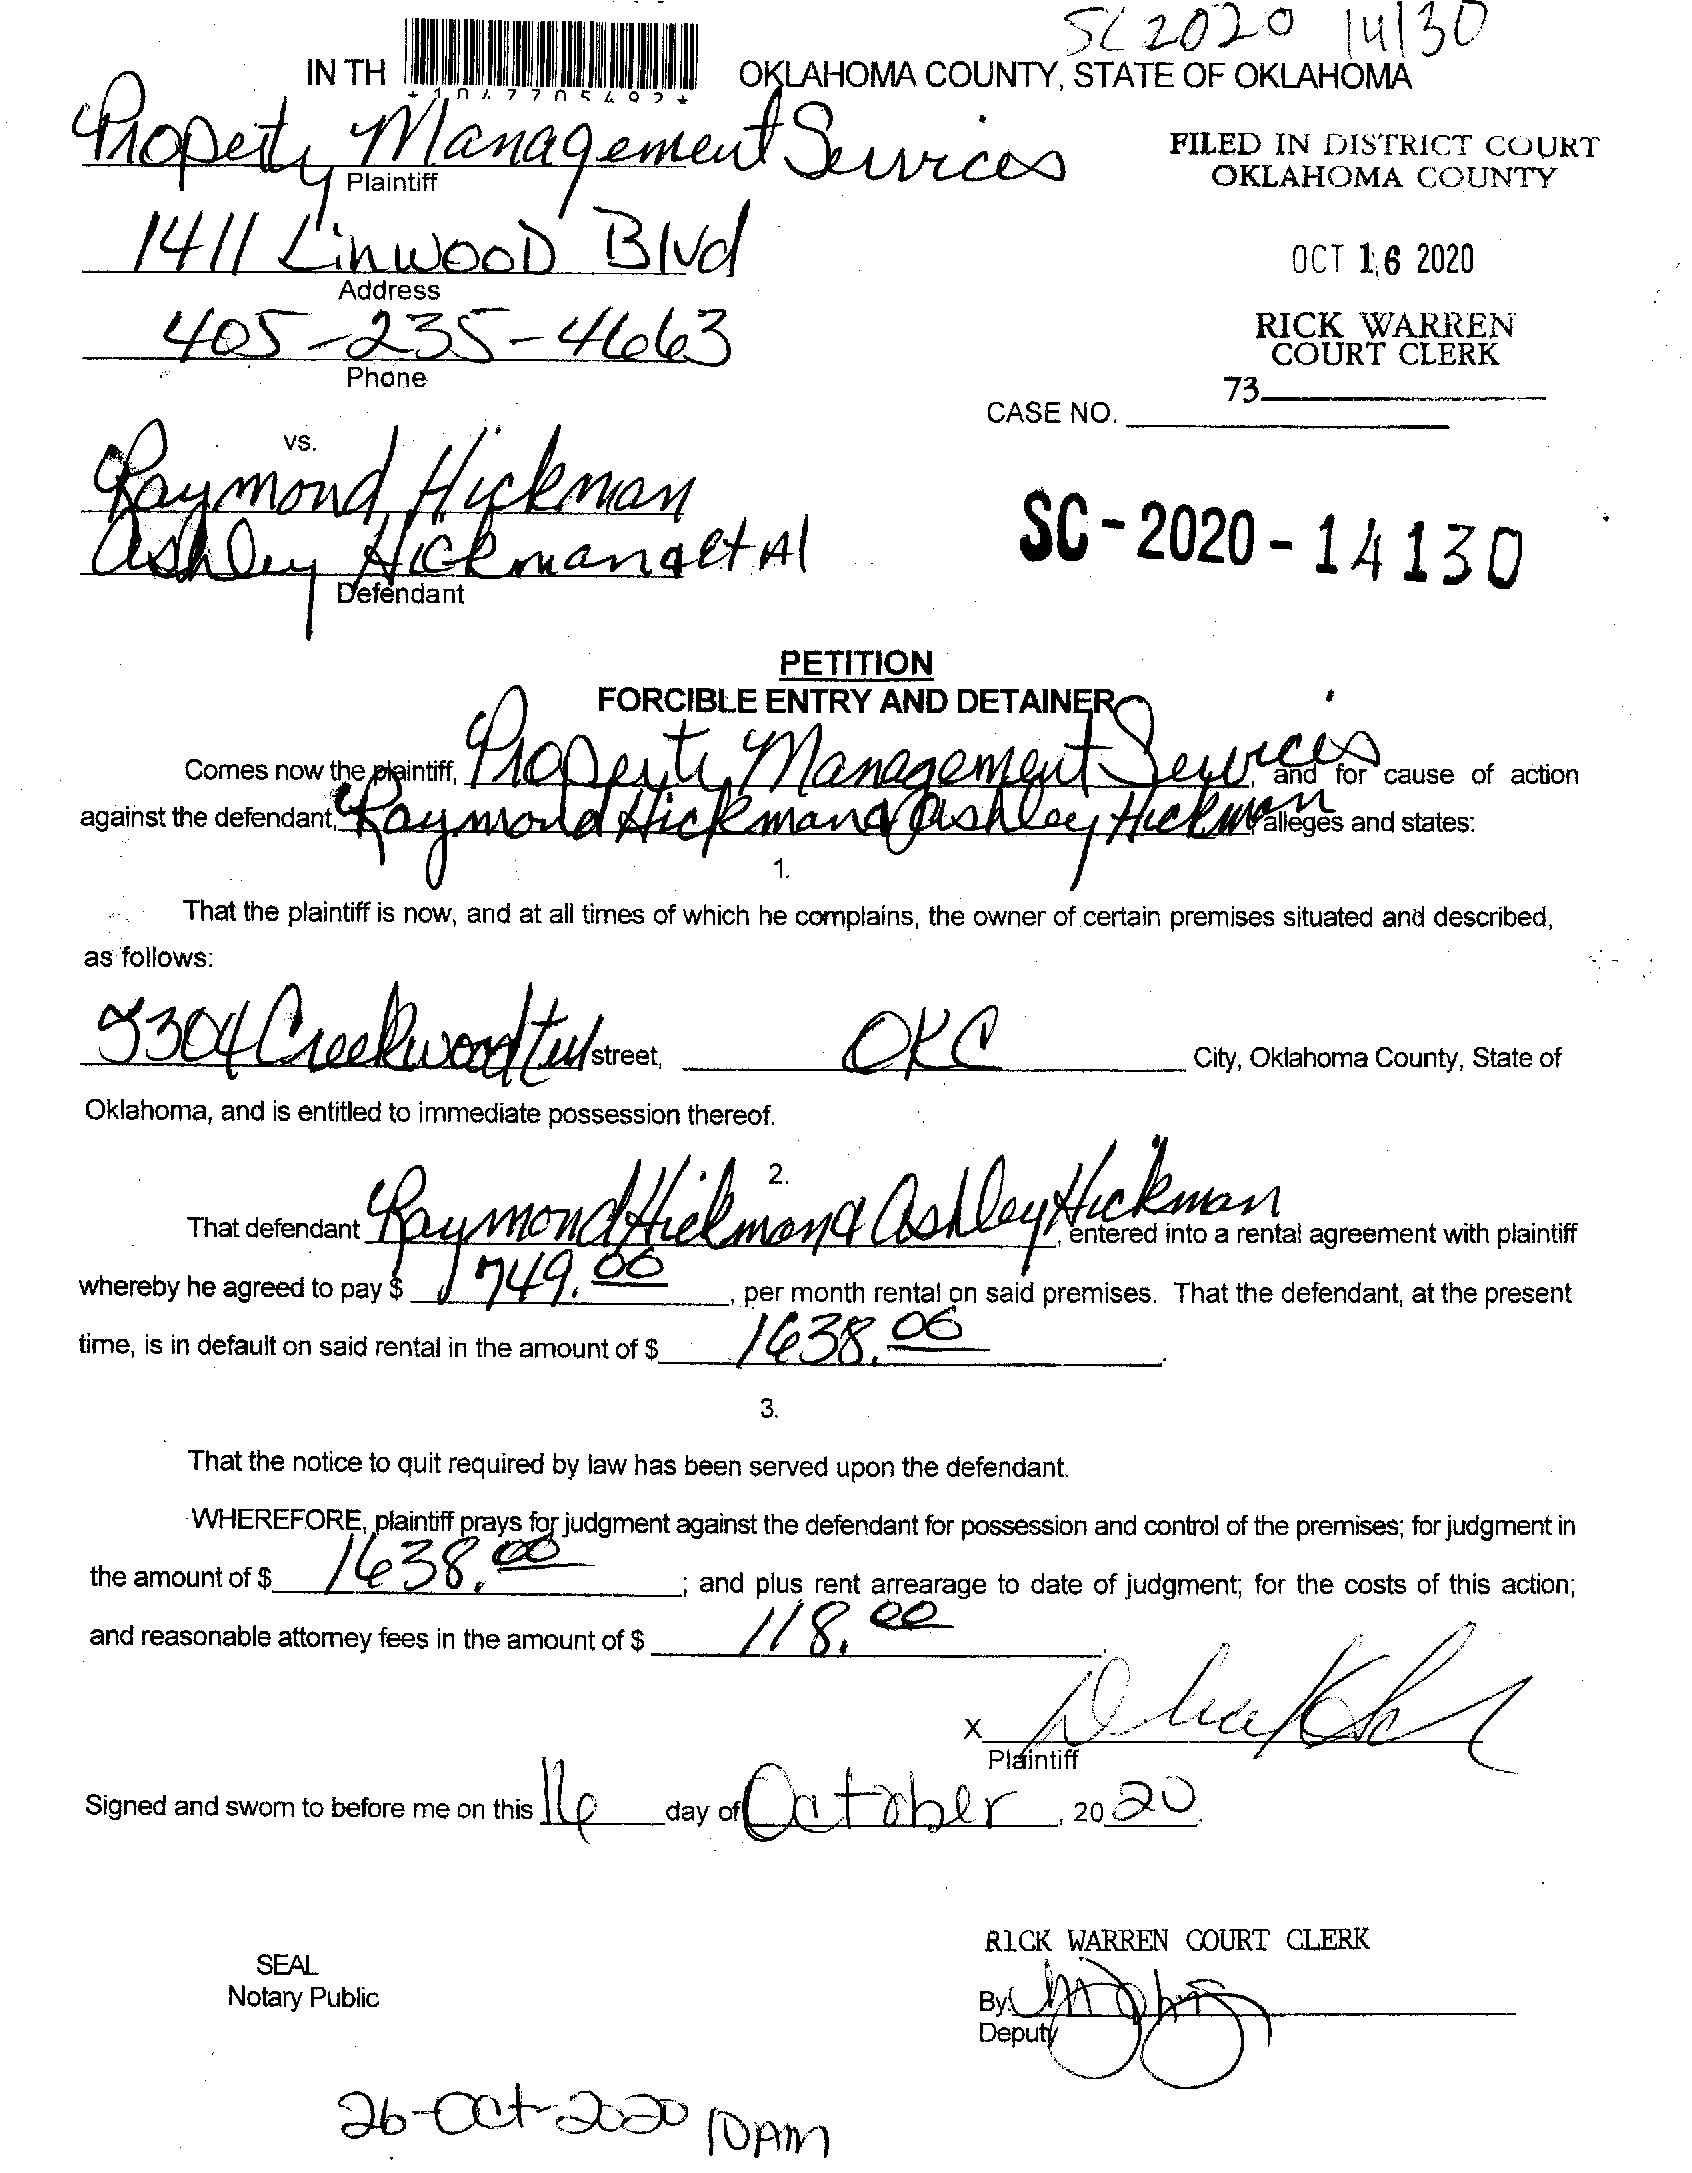 SC 2020 14130
IN TH OKLAHOMA COUNTY, STATE OF OKLAHOMA
*1047705492*
Property Management Services
Plaintiff
FILED IN DISTRICT COURT
OKLAHOMA COUNTY
1411 Linwood Blvd
Address
OCT 16 2020
405-235-4663
Phone
RICK WARREN
COURT CLERK
73
CASE NO.
vs.
Raymond Hickman
Ashley Hickman et Al
Defendant
SC-2020-14130
PETITION
FORCIBLE ENTRY AND DETAINER
Comes now the plaintiff, Property Management Services, and for cause of action
against the defendant, Raymond Hickman & Ashley Hickman alleges and states:
1.
That the plaintiff is now, and at all times of which he complains, the owner of certain premises situated and described,
as follows:
3304 Creekwood Ter street, OKC City, Oklahoma County, State of
Oklahoma, and is entitled to immediate possession thereof.
2.
That defendant Raymond Hickman & Ashley Hickman, entered into a rental agreement with plaintiff
whereby he agreed to pay $ 749.00, per month rental on said premises. That the defendant, at the present
time, is in default on said rental in the amount of $ 1638.00.
3.
That the notice to quit required by law has been served upon the defendant.
WHEREFORE, plaintiff prays for judgment against the defendant for possession and control of the premises; for judgment in
the amount of $ 1638.00; and plus rent arrearage to date of judgment; for the costs of this action;
and reasonable attorney fees in the amount of $ 118.00.
X
Plaintiff
Signed and sworn to before me on this 16 day of October, 2020.
RICK WARREN COURT CLERK
SEAL
Notary Public
By
Deputy
26-Oct-2020 10AM